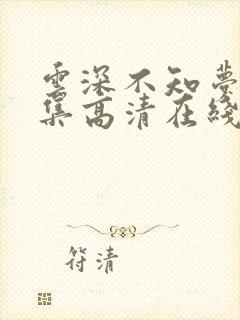 雲深不知夢
集高清在綫
符清